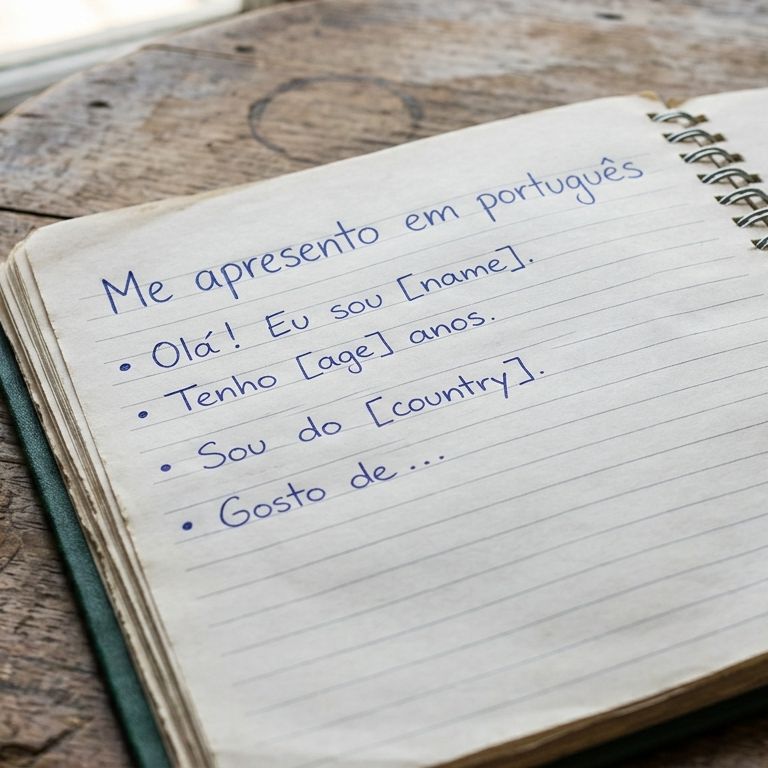 Me apresento em português
• Olá! Eu sou [name].
• Tenho [age] anos.
• Sou do [country].
• Gosto de...